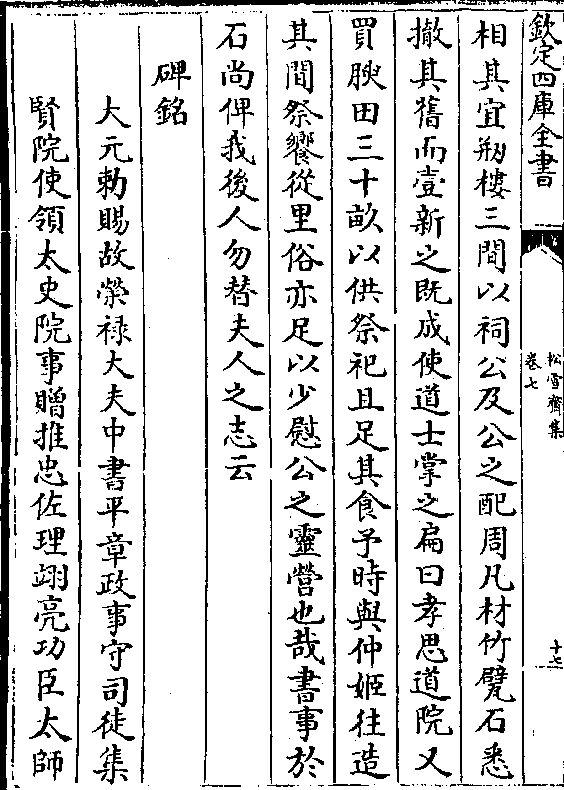 欽定四庫全書
松雪齋集
卷七
十七
相其宜剏樓三間以祠公及公之配周凡材竹甓石悉
撤其舊而壹新之既成使道士掌之扁曰孝思道院又
買腴田三十畝以供祭祀且足其食予時與仲姬往造
其間祭饗從里俗亦足以少慰公之靈營也哉書事於
石尚俾我後人勿替夫人之志云
碑銘
大元勅賜故榮禄大夫中書平章政事守司徒集
賢院使領太史院事贈推忠佐理翊亮功臣太師